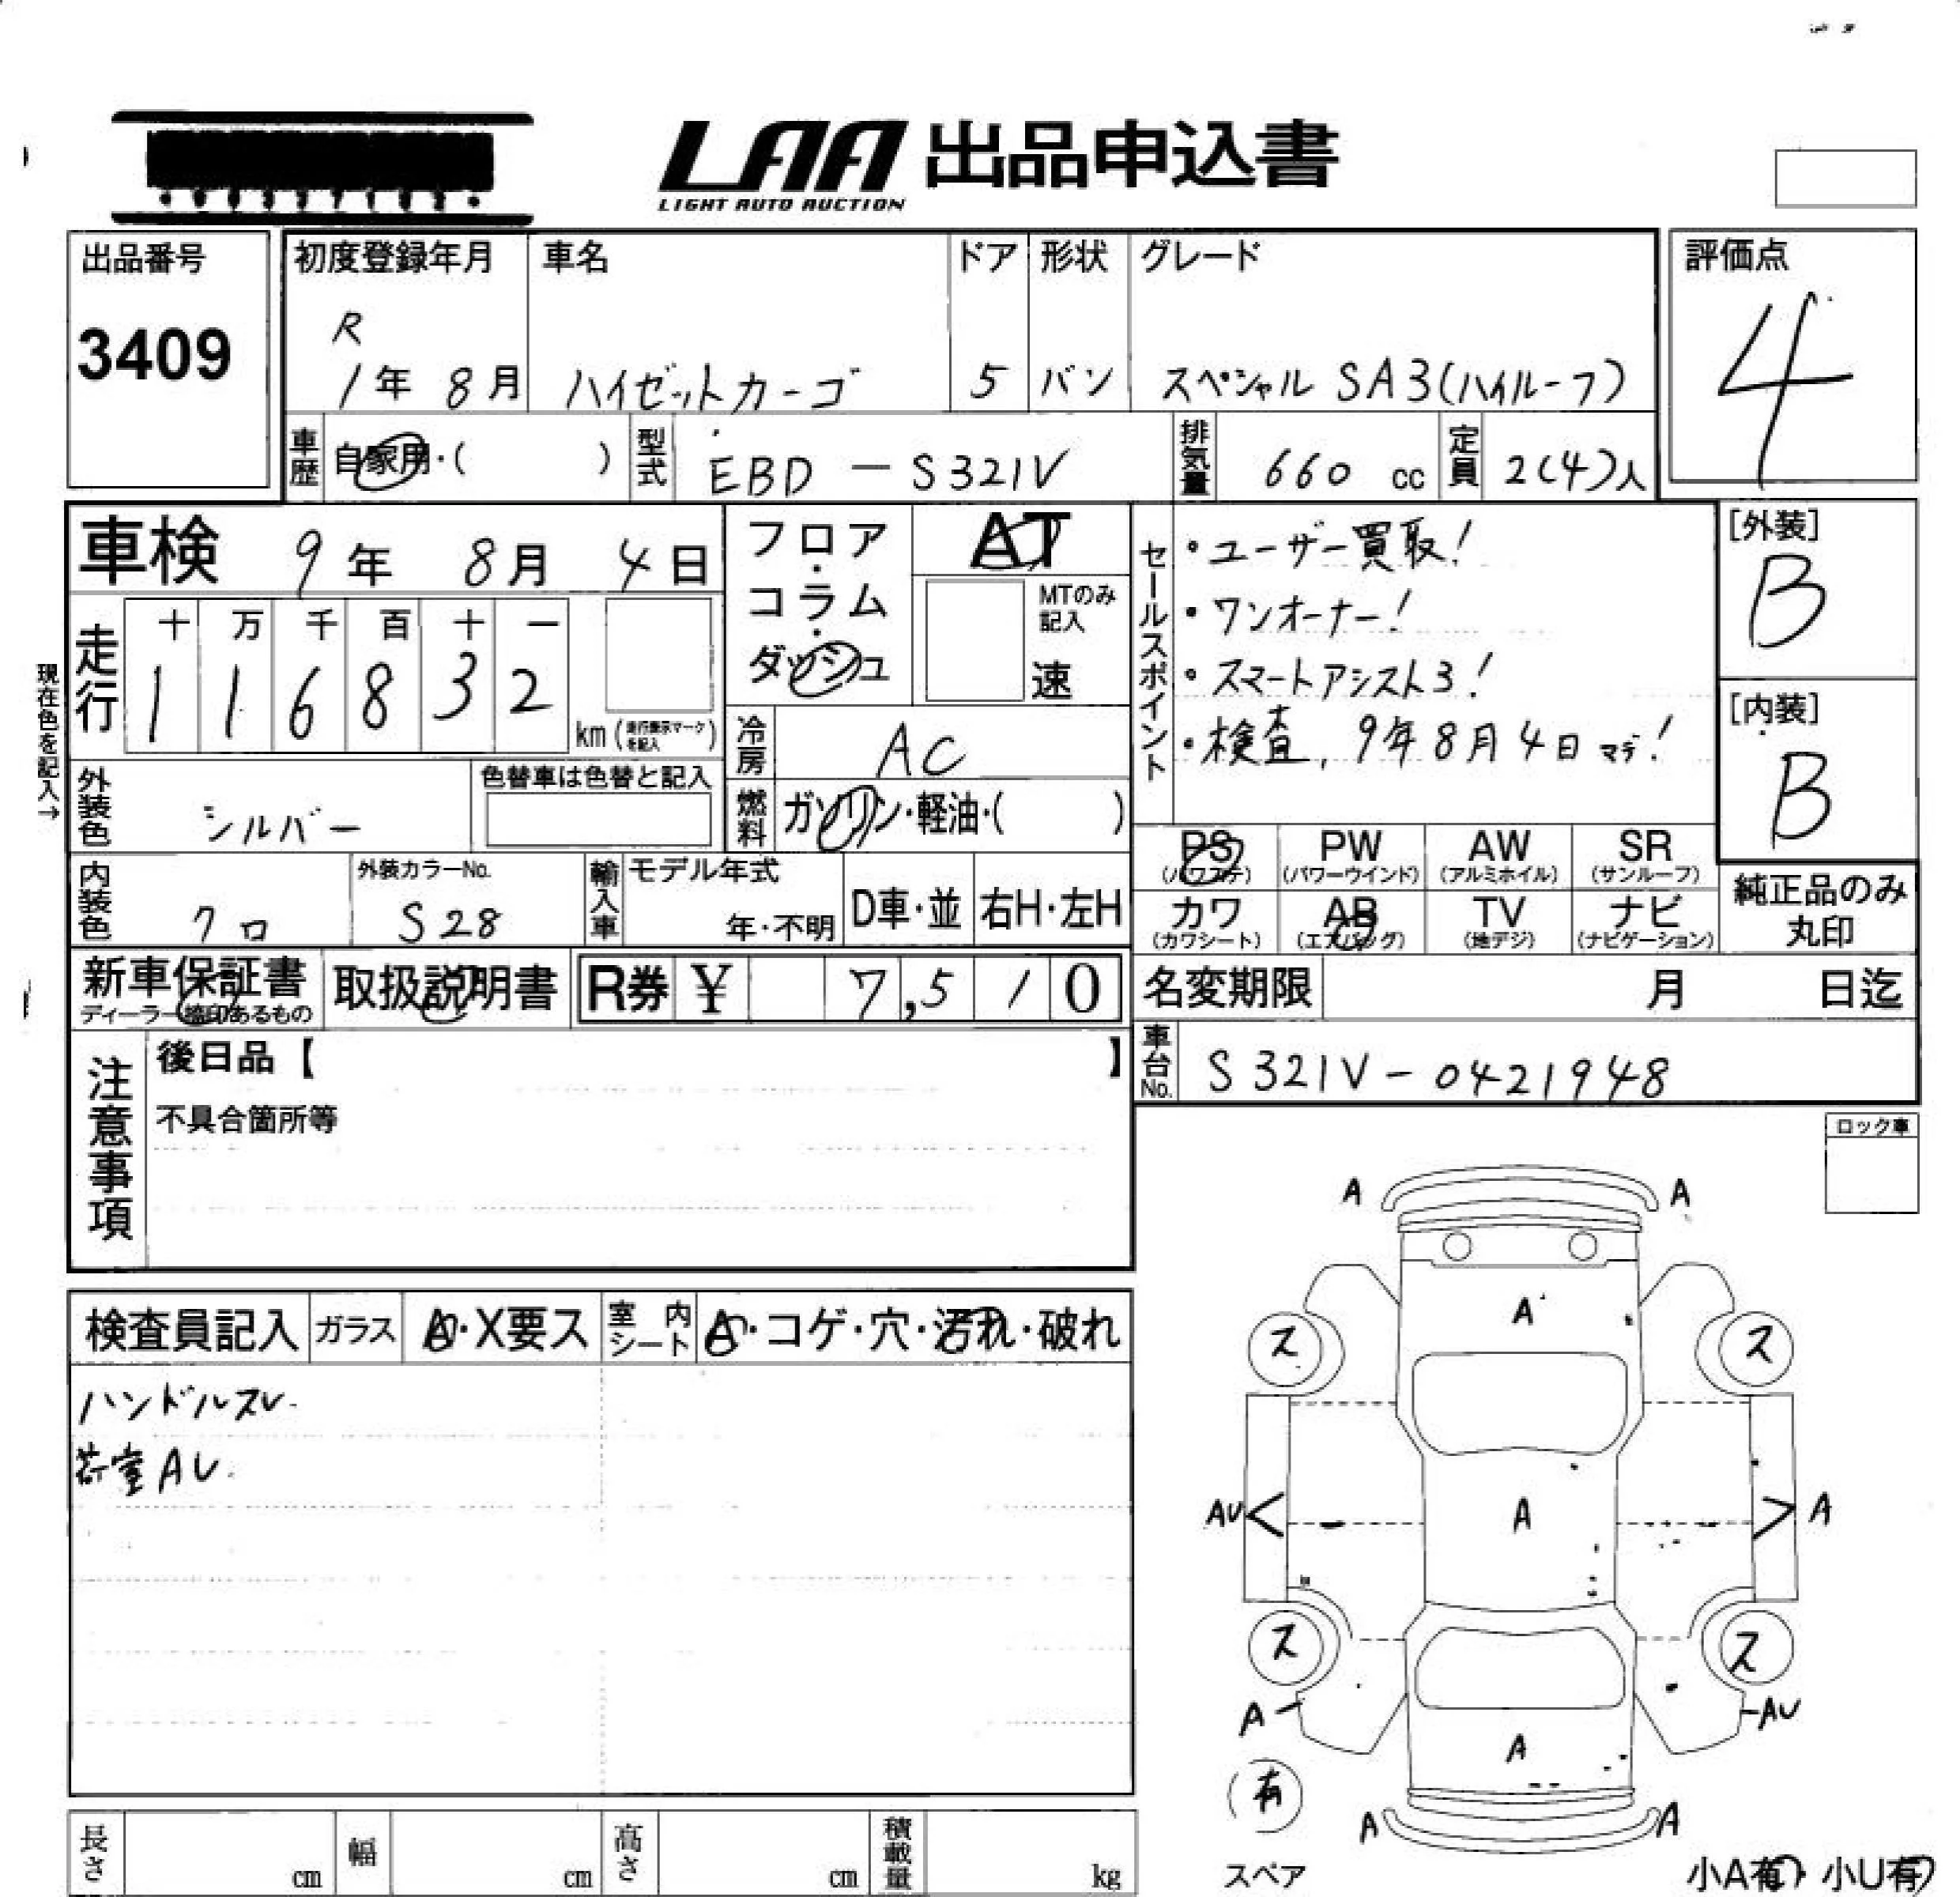 LAA 出品申込書
LIGHT AUTO AUCTION
出品番号
3409
初度登録年月
R
1年 8月
車名
ハイゼットカーゴ
ドア
5
形状
バン
グレード
スペシャル SA3(ハイルーフ)
評価点
4
車歴
自家用・( )
型式
EBD - S321V
排気量
660 cc
定員
2(4)人
車検 9年 8月 4日
フロア・コラム・ダッシュ
AT
MTのみ記入
速
セールスポイント
・ユーザー買取!
・ワンオーナー!
・スマートアシスト3!
・検査, 9年8月4日マデ!
[外装]
B
[内装]
B
現在色を記入→
走行
十 万 千 百 十 一
1 1 6 8 3 2
km(走行表示マークを記入)
冷房
AC
外装色
シルバー
色替車は色替と記入
燃料
ガソリン・軽油・( )
PS (パワステ)
PW (パワーウインド)
AW (アルミホイル)
SR (サンルーフ)
カワ (カワシート)
AB (エアバッグ)
TV (地デジ)
ナビ (ナビゲーション)
純正品のみ
丸印
内装色
クロ
外装カラーNo.
S28
輸入車
モデル年式
年・不明
D車・並
右H・左H
新車保証書
ディーラー捺印あるもの
取扱説明書
R券 ¥ 7,510
名変期限 月 日迄
車台No.
S321V-0421948
注意事項
後日品【 】
不具合箇所等
ロック車
検査員記入
ガラス
A・X要ス
室内シート
A・コゲ・穴・汚れ・破れ
ハンドルスレ
荷室AU
A A
A
ス ス
AU A A
ス ス
A AU
A
A A
有
スペア
小A有・小U有
長さ cm
幅 cm
高さ cm
積載量 kg